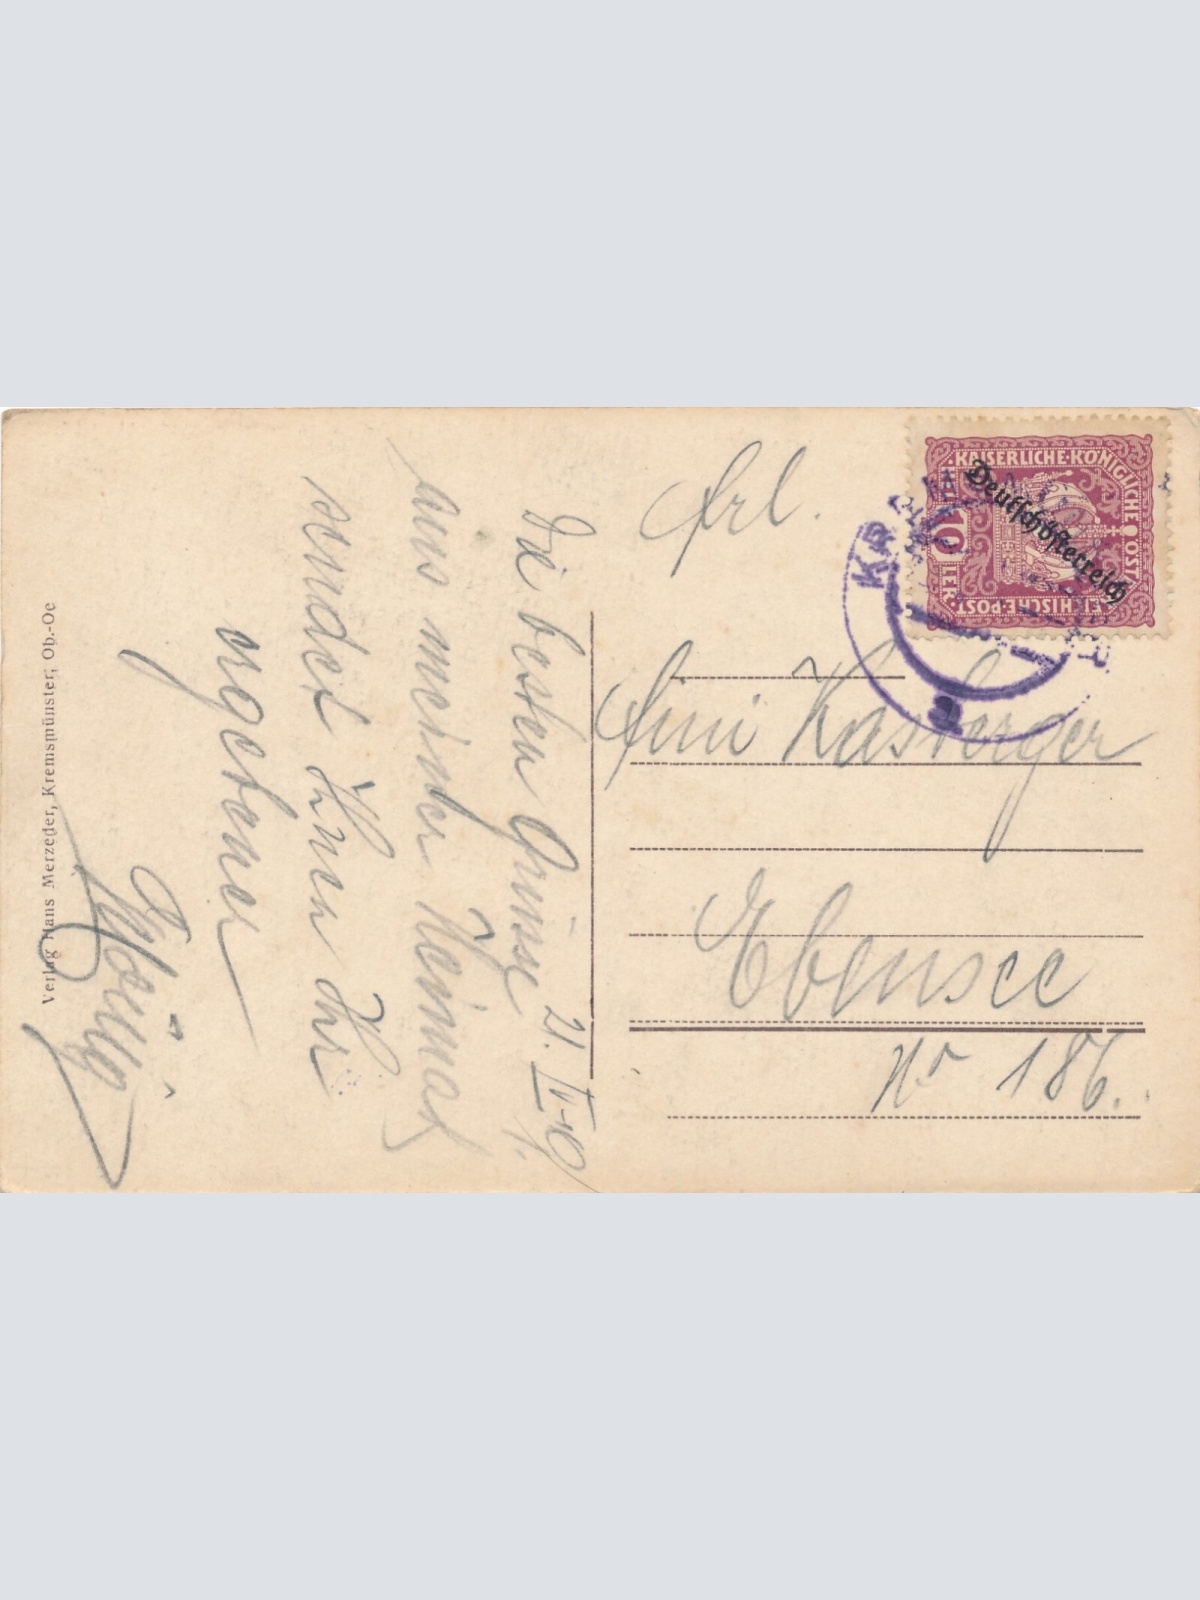 Frl.
Fini Kasberger
Ebensee
Nr 186.
21. IV. 19.
Die besten Grüsse
aus meiner Heimat
sendet Ihnen Ihr
ergebener
Verlag Hans Merzeder, Kremsmünster, Ob.-Oe
KAISERLICHE KÖNIGLICHE ÖST
EICHISCHE POST
10
LER
Deutschösterreich
a